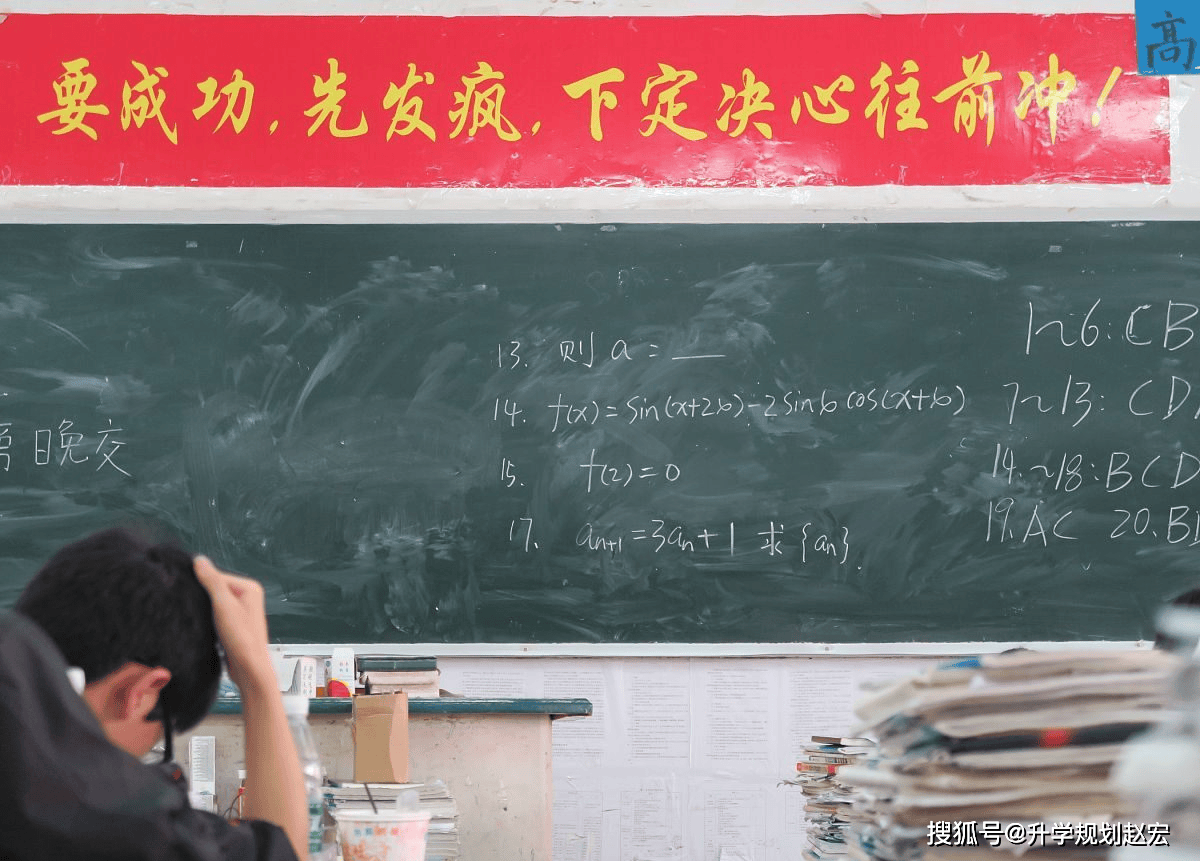 高
要成功,先发疯,下定决心往前冲!
13. 则 a = ___
14. f(x) = sin(x+2b) - 2sinb cos(x+b)
15. f(2) = 0
17. a_{n+1} = 3a_n + 1 求 {a_n}.
1~6: CB
7~13: CD
14.~18: BCD
19. AC 20. B
日晚交
搜狐号@升学规划赵宏